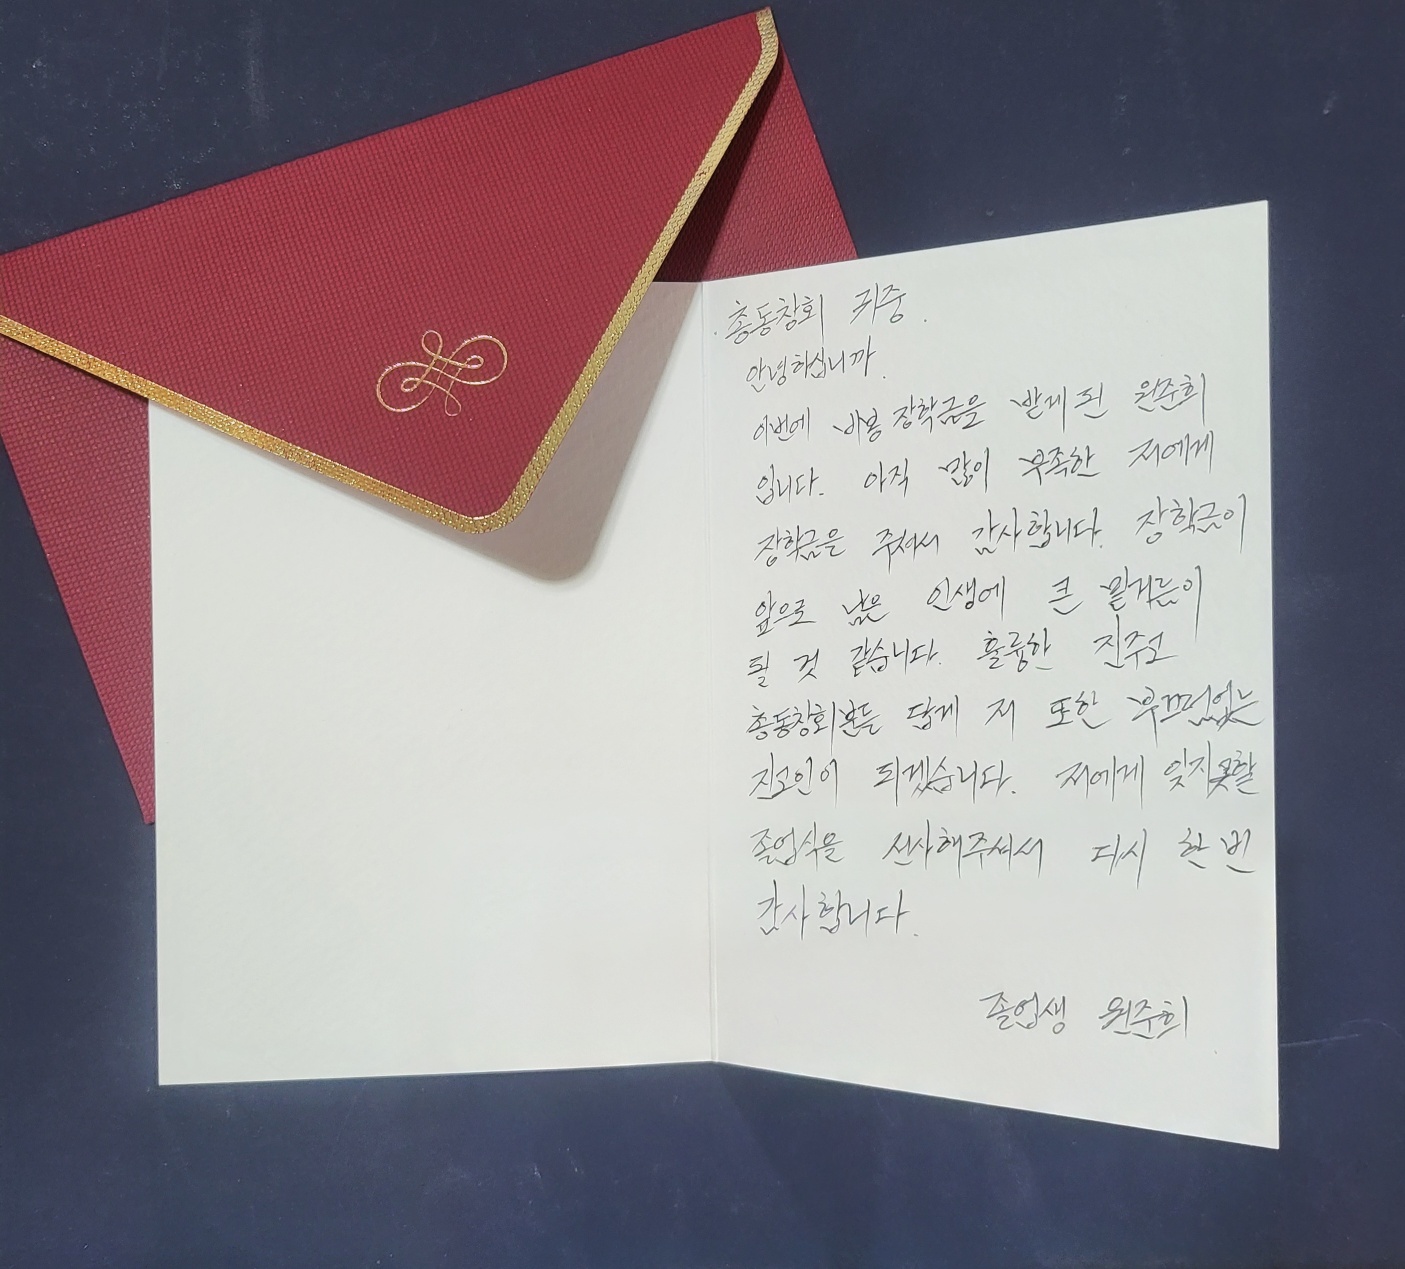 총동창회 귀중.
안녕하십니까.
이번에 비봉 장학금을 받게 된 원준희
입니다. 아직 많이 부족한 저에게
장학금을 주셔서 감사합니다. 장학금이
앞으로 남은 인생에 큰 밑거름이
될 것 같습니다. 훌륭한 진주고
총동창회분들 답게 저 또한 부끄럼없는
진고인이 되겠습니다. 저에게 잊지못할
졸업식을 선사해주셔서 다시 한 번
감사합니다.
졸업생 원준희